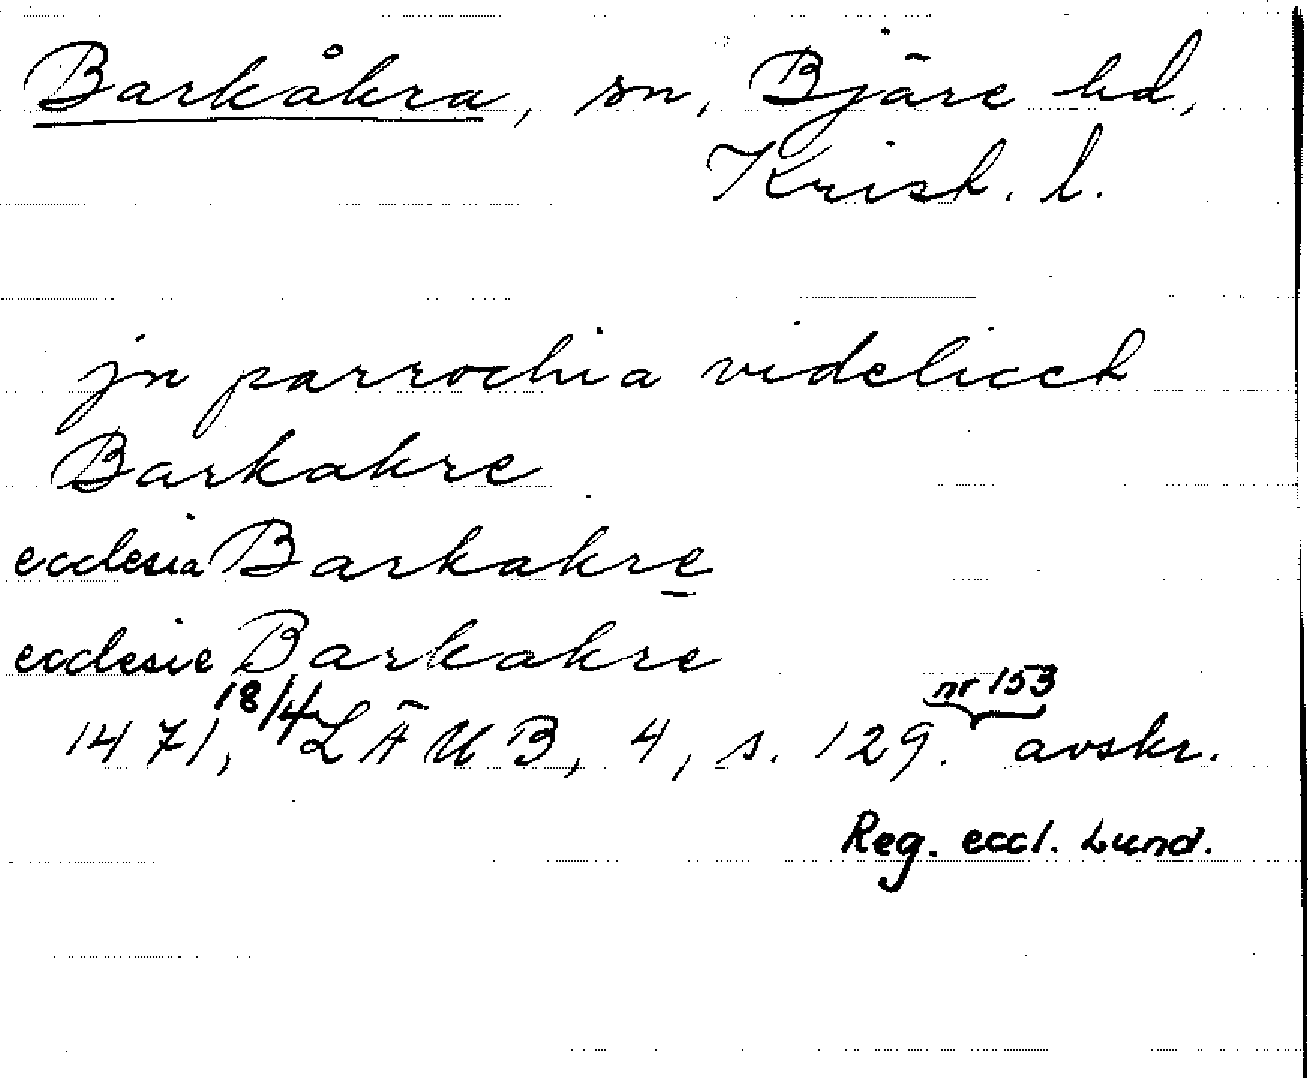 Barkåkra, sn, Bjäre hd,
Krist. l.
jn parrochia videlicet
Barkakre
ecclesia Barkakre
ecclesie Barkakre
1471, 18/4 LÄUB, 4, s. 129. nr 153 avskr.
Reg. eccl. Lund.